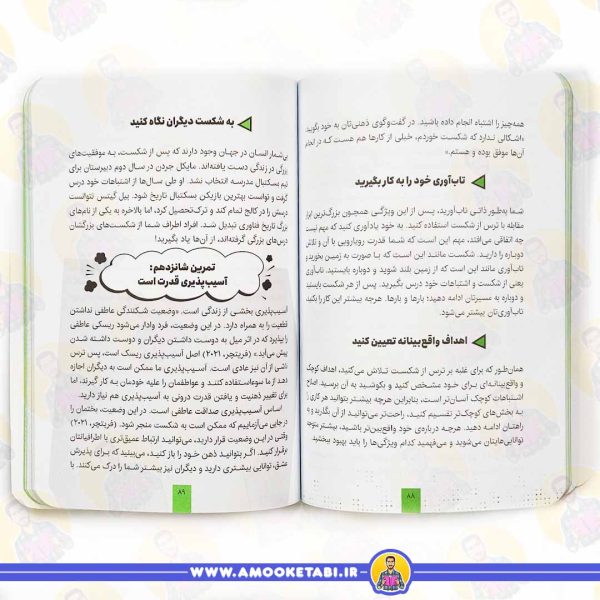 همه‌چیز را اشتباه انجام داده باشید. در گفت‌وگوی ذهنی‌تان به خود بگویید:
«اشکالی ندارد که شکست خوردم، خیلی از کارها هم هست که در انجام
آن‌ها موفق بوده و هستم.»
تاب‌آوری خود را به کار بگیرید
شما به‌طور ذاتی تاب‌آورید، پس از این ویژگی همچون بزرگ‌ترین ابزار
مقابله با ترس از شکست استفاده کنید. به خود یادآوری کنید که مهم نیست
چه اتفاقی می‌افتد، مهم این است که شما قدرت رویارویی با آن و تلاش
دوباره را دارید. شکست مانند این است که با صورت به زمین بخورید و
تاب‌آوری مانند این است که از زمین بلند شوید و دوباره بایستید. تاب‌آوری
یعنی از شکست و اشتباهات خود درس بگیرید. پس از هر شکست بایستید
و دوباره به مسیرتان ادامه دهید؛ بارها و بارها. هرچه بیشتر این کار را بکنید
تاب‌آوری‌تان بیشتر می‌شود.
اهداف واقع‌بینانه تعیین کنید
همان‌طور که برای غلبه بر ترس از شکست تلاش می‌کنید، اهداف کوچک
و واقع‌بینانه‌ای برای خود مشخص کنید و بکوشید به آن برسید. اصلاح
اشتباهات کوچک آسان‌تر است، بنابراین هرچه بیشتر بتوانید هر کاری را
به بخش‌های کوچک‌تر تقسیم کنید، راحت‌تر می‌توانید از آن بگذرید و به
راهتان ادامه دهید. هرچه درباره‌ی خود واقع‌بین‌تر باشید، بیشتر متوجه
توانایی‌هایتان می‌شوید و می‌فهمید کدام ویژگی‌ها را باید بهبود ببخشید.
۸۸
به شکست دیگران نگاه کنید
بی‌شمار انسان در جهان وجود دارند که پس از شکست، به موفقیت‌های
بزرگی در زندگی دست یافته‌اند. مایکل جردن در سال دوم دبیرستان برای
تیم بسکتبال مدرسه انتخاب نشد. او طی سال‌ها از اشتباهات خود درس
گرفت و توانست بهترین بازیکن بسکتبال تاریخ شود. بیل گیتس نتوانست
درسش را در کالج تمام کند و ترک‌تحصیل کرد، اما بالاخره به یکی از نام‌های
بزرگ تاریخ فناوری تبدیل شد. افراد اطراف شما از شکست‌های بزرگشان
درس‌های بزرگی گرفته‌اند، از آن‌ها یاد بگیرید!
تمرین شانزدهم:
آسیب‌پذیری قدرت است
آسیب‌پذیری بخشی از زندگی است. «وضعیت شکنندگی عاطفی نداشتن
قطعیت را به همراه دارد. در این وضعیت، فرد وادار می‌شود ریسکی عاطفی
را بپذیرد که در اثر میل به دوست داشتن دیگران و دوست داشته شدن
پیش می‌آید.» (فریتچر، ۲۰۲۱) اصل آسیب‌پذیری ریسک است، پس ترس
ناشی از آن نیز عادی است. آسیب‌پذیری ما ممکن است به دیگران اجازه
دهد از ما سوءاستفاده کنند و عواطفمان را علیه خودمان به کار گیرند، اما
برای تغییر ذهنیت و یافتن قدرت درونی به آسیب‌پذیری هم نیاز دارید.
اساس آسیب‌پذیری صداقت عاطفی است. در این وضعیت، بختمان را
در جایی می‌آزماییم که ممکن است به شکست منجر شود. (فریتچر، ۲۰۲۱)
وقتی در این وضعیت قرار دارید، می‌توانید ارتباط عمیق‌تری با اطرافیانتان
برقرار کنید. اگر بتوانید ذهن خود را باز کنید، می‌بینید که برای پذیرش
عشق، توانایی بیشتری دارید و دیگران نیز بیشتر شما را درک می‌کنند. با
۸۹
WWW.AMOOKETABI.IR